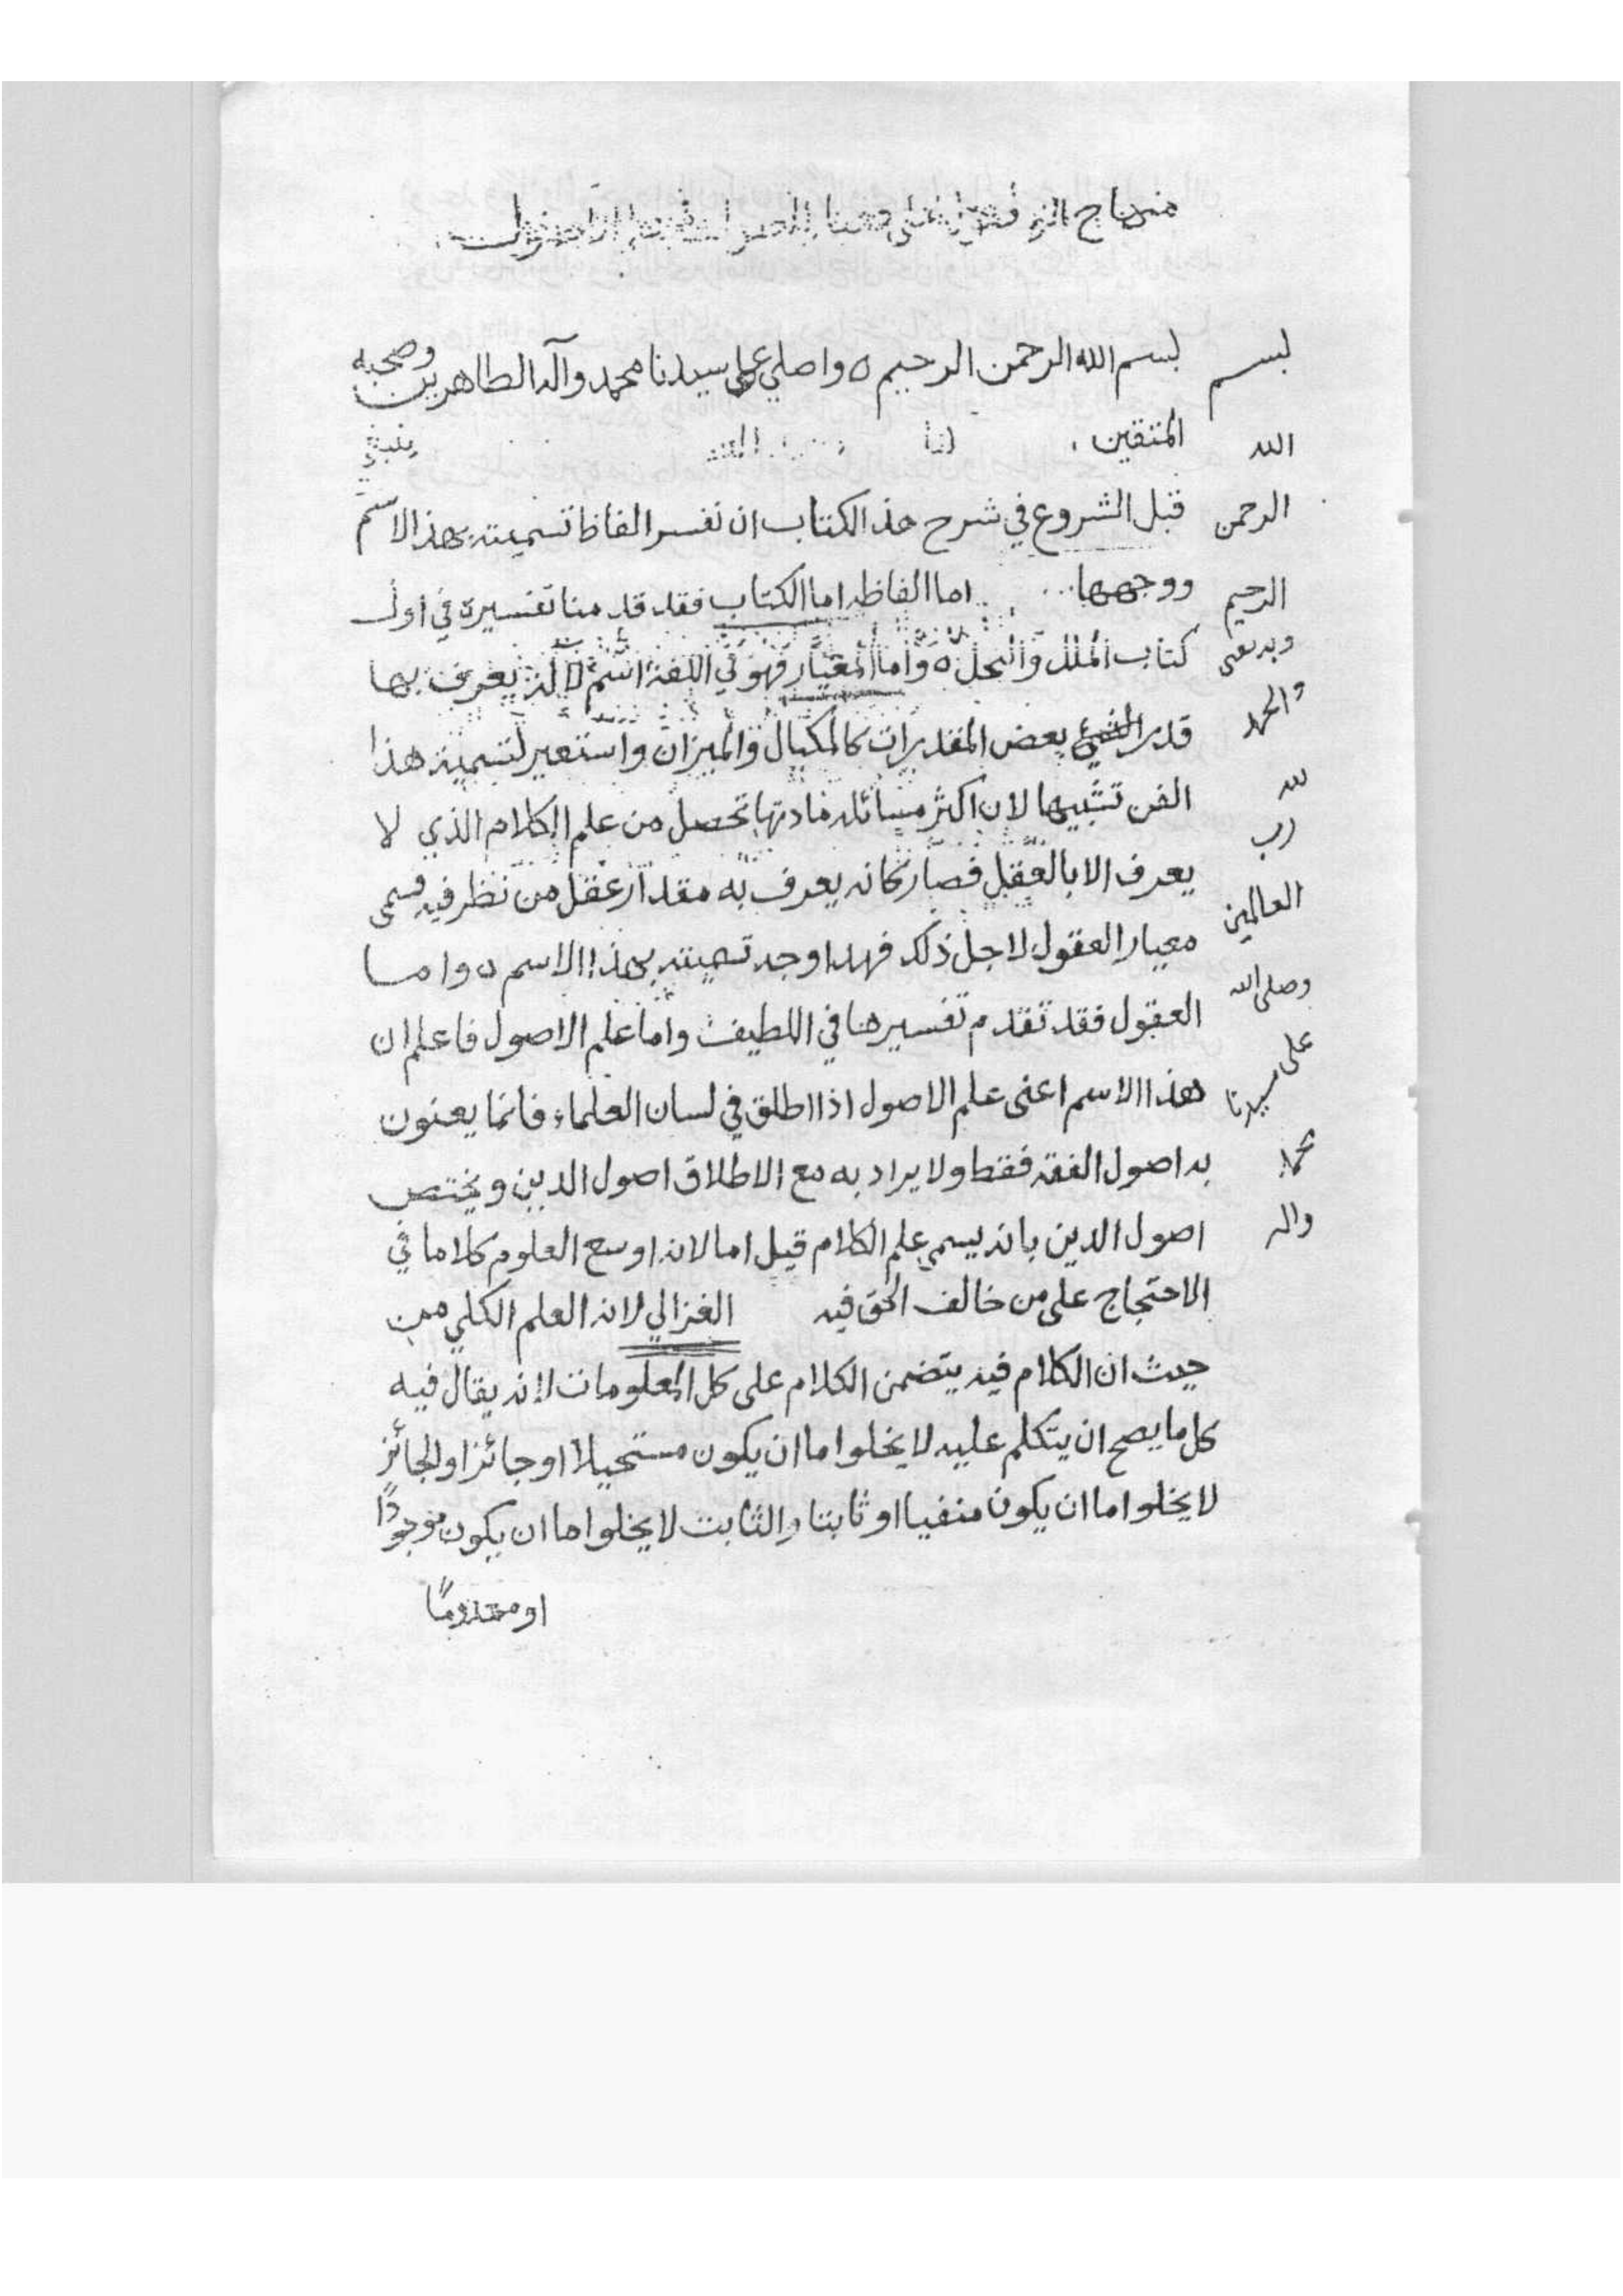 منهاج
بسم الله الرحمن الرحيم ه واصلي على سيدنا محمد وآله الطاهرين وصحبه
المتقين . لنا ينبغي
قبل الشروع في شرح هذ الكتاب ان نفسر الفاظ تسميته بهذ الاسم
ووجهها اما الفاظه اما الكتاب فقد قدمنا تفسيره في اول
كتاب الملل والنحل ه واما المعيار فهو في اللغة اسم لالة يعرف بها
قدر بعض المقدرات كالمكيال والميزان واستعير لتسمية هذا
الفن تشبيها لان اكثر مسائله مادتها تحصل من علم الكلام الذي لا
يعرف الا بالعقل فصار كانه يعرف به مقدار عقل من نظر فيه فسمى
معيار العقول لاجل ذلك فهذا وجه تسميته بهذا الاسم ه واما
العقول فقد تقدم تفسيرها في اللطيف واما علم الاصول فاعلم ان
هذا الاسم اعني علم الاصول اذا اطلق في لسان العلماء فانما يعنون
به اصول الفقه فقط ولا يراد به مع الاطلاق اصول الدين ويختص
اصول الدين بانه يسمى علم الكلام قيل اما لانه اوسع العلوم كلاما في
الاحتجاج على من خالف الحق فيه الغزالي لانه العلم الكلي من
حيث ان الكلام فيه يتضمن الكلام على كل المعلومات لانه يقال فيه
كل ما يصح ان يتكلم عليه لا يخلوا اما ان يكون مستحيلا او جائزا والجائز
لا يخلوا اما ان يكون منفيا او ثابتا والثابت لا يخلوا اما ان يكون موجودًا
او معدومًا
بسم
الله
الرحمن
الرحيم
وبه نستعين
والحمد
لله
رب
العالمين
وصلى الله
على
سيدنا
محمد
واله